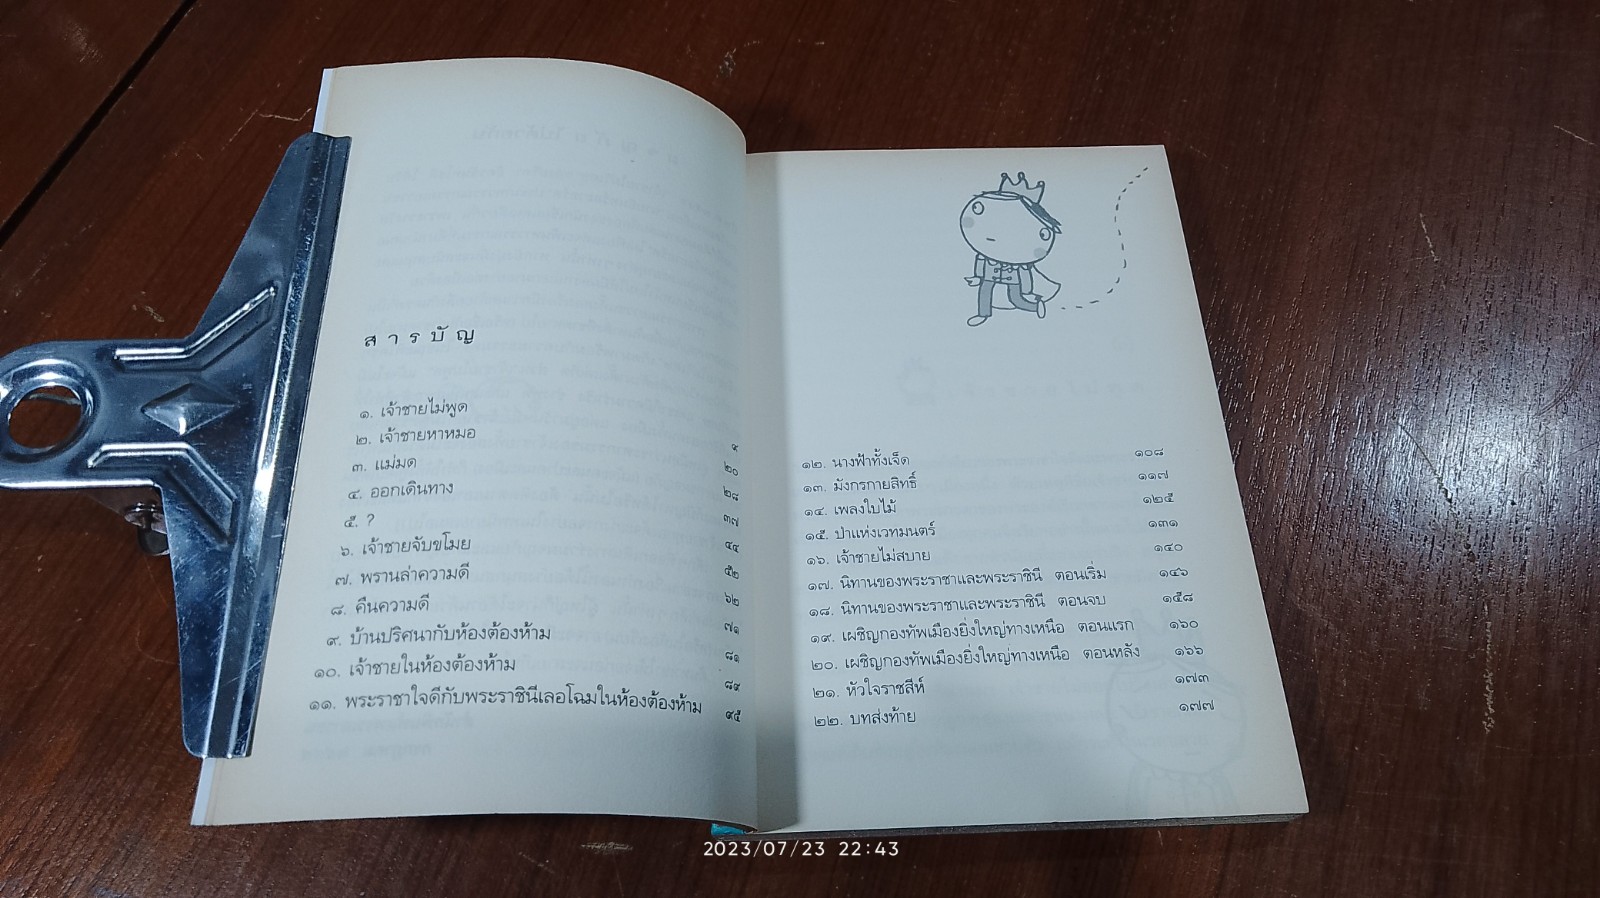 สารบัญ
๑. เจ้าชายไม่พูด ๙
๒. เจ้าชายหาหมอ ๒๐
๓. แม่มด ๒๘
๔. ออกเดินทาง ๓๗
๕. ? ๔๔
๖. เจ้าชายจับขโมย ๕๒
๗. พรานล่าความดี ๖๒
๘. คืนความดี ๗๑
๙. บ้านปริศนากับห้องต้องห้าม ๘๑
๑๐. เจ้าชายในห้องต้องห้าม ๘๙
๑๑. พระราชาใจดีกับพระราชินีเลอโฉมในห้องต้องห้าม ๙๕
๑๒. นางฟ้าทั้งเจ็ด ๑๐๘
๑๓. มังกรกายสิทธิ์ ๑๑๗
๑๔. เพลงใบไม้ ๑๒๕
๑๕. ป่าแห่งเวทมนตร์ ๑๓๑
๑๖. เจ้าชายไม่สบาย ๑๔๐
๑๗. นิทานของพระราชาและพระราชินี ตอนเริ่ม ๑๔๖
๑๘. นิทานของพระราชาและพระราชินี ตอนจบ ๑๕๘
๑๙. เผชิญกองทัพเมืองยิ่งใหญ่ทางเหนือ ตอนแรก ๑๖๐
๒๐. เผชิญกองทัพเมืองยิ่งใหญ่ทางเหนือ ตอนหลัง ๑๖๖
๒๑. หัวใจราชสีห์ ๑๗๓
๒๒. บทส่งท้าย ๑๗๗
2023/07/23 22:43